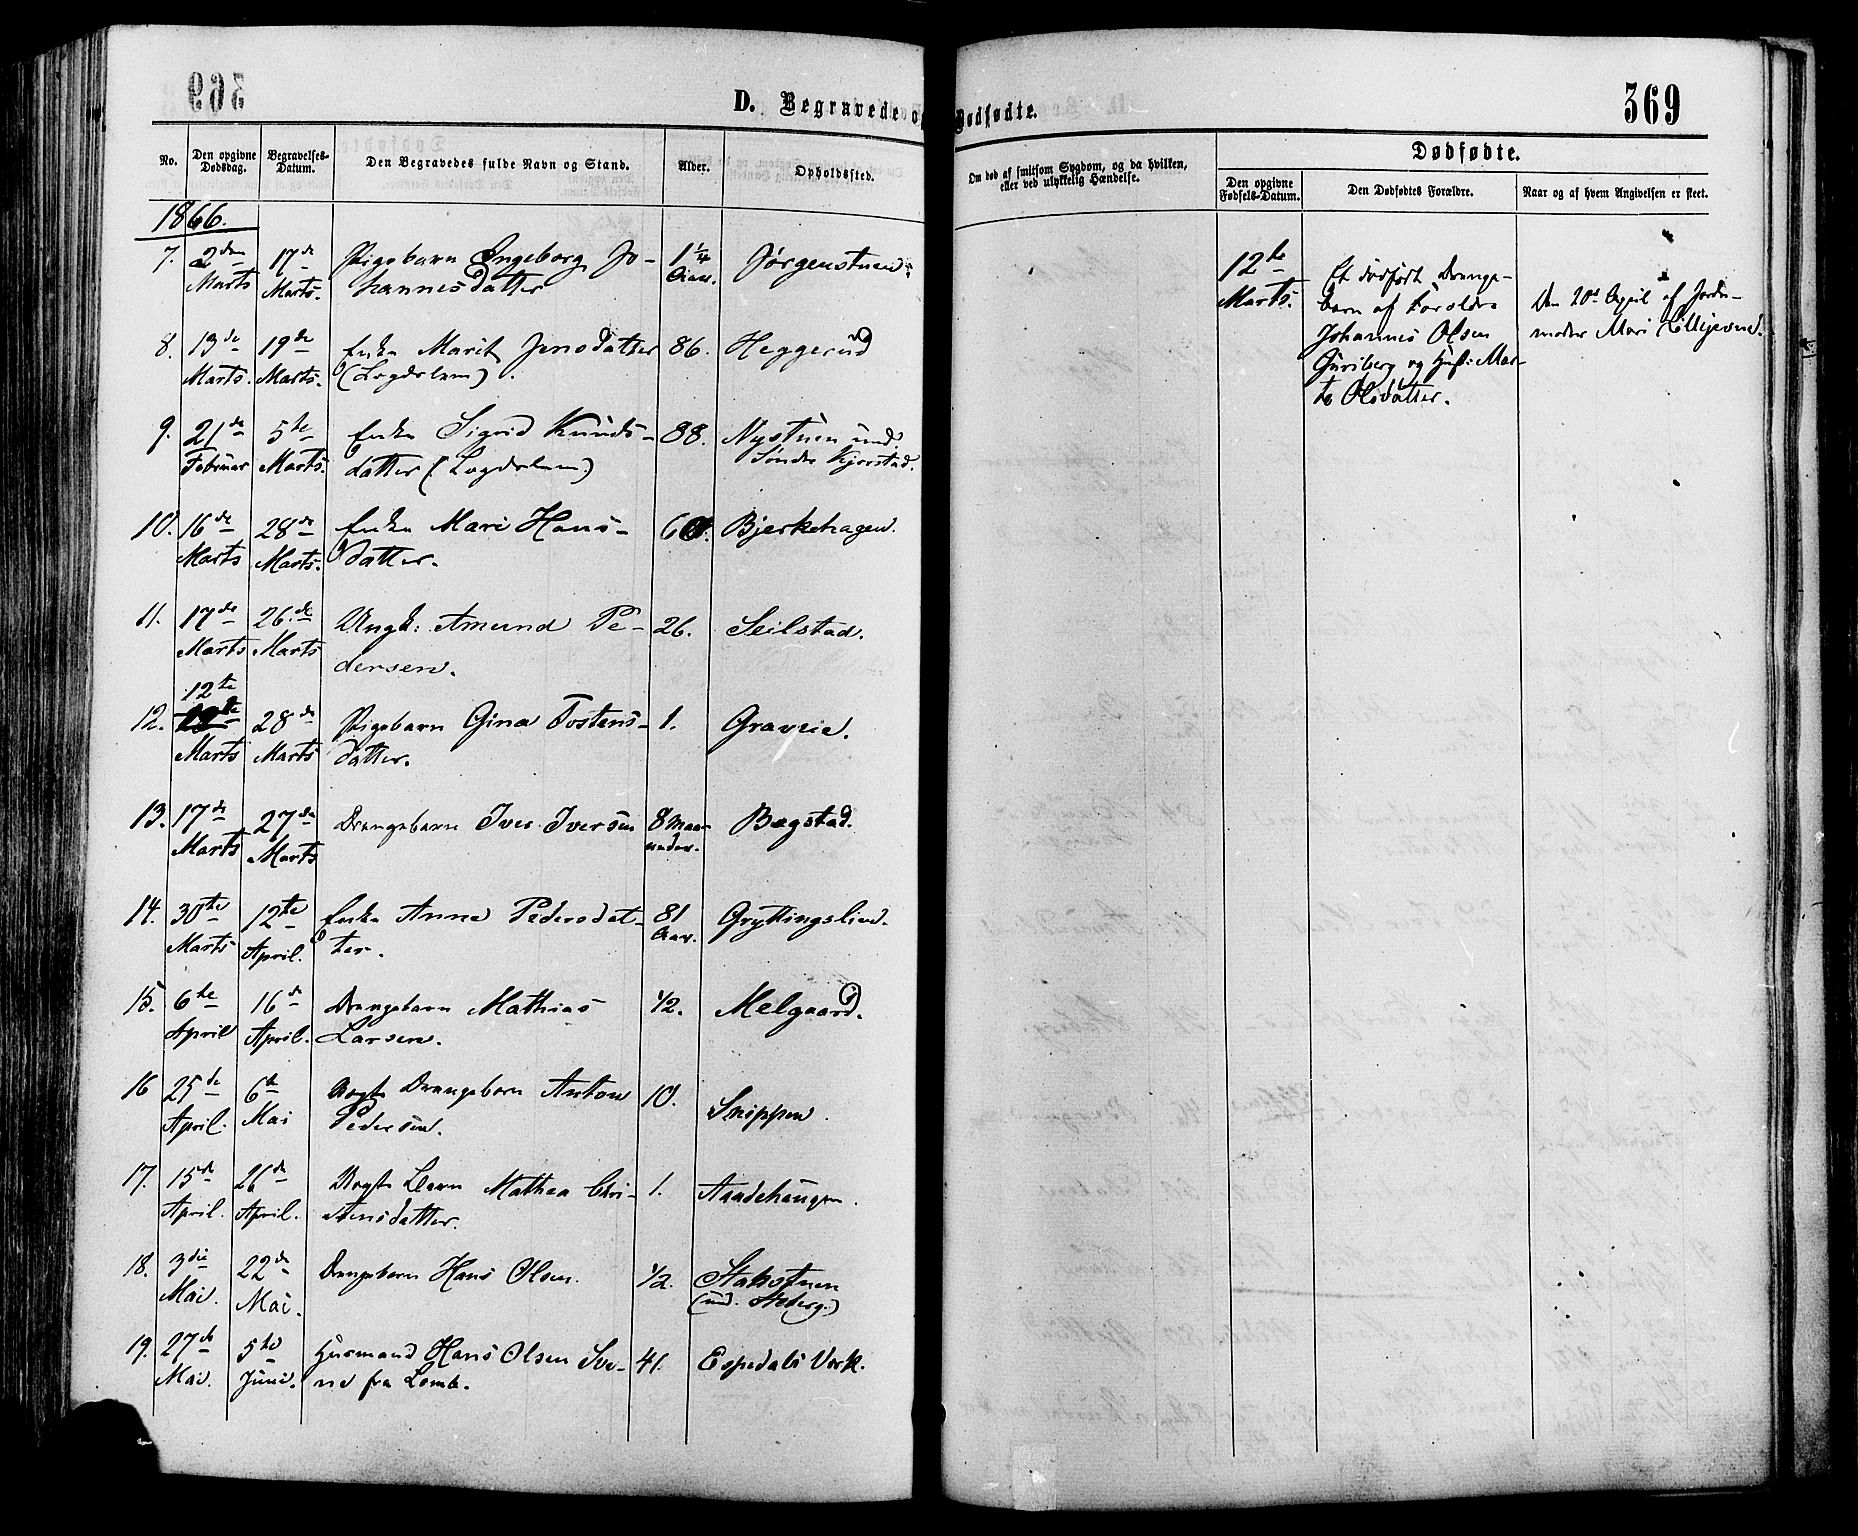 369
D. Begravede o
Dødfødte.
No.
Den opgivne Dødsdag.
Begravelses-Datum.
Den Begravedes fulde Navn og Stand.
Alder.
Opholdssted.
Om død af smitsom Sygdom, og da hvilken,
eller ved ulykkelig Hændelse.
Dødfødte.
Den opgivne Fødsels-Datum.
Den Dødfødtes Forældre.
Naar og af hvem Angivelsen er skeet.
1866.
7. 2den 17de Pigebarn Ingeborg Jo- 1 1/4 Jørgenstuen
Marts Marts. hannesdatter Aar.
8. 13de 19de Enke Marit Jensdatter 86. Heggerud
Marts. Marts. (Lægdslem).
9. 21de 5te Enke Sigrid Knuds- 88. Nystuen und.
Februar Marts. datter (Lægdslem) Søndre Kjorstad.
10. 16de 28de Enke Mari Hans- Bjerkehagen.
Marts Marts. datter.
11. 17de 26de Ungk: Amund Pe- 26. Seilstad.
Marts Marts dersen.
12te
12. 28de Pigebarn Gina Tostens- 1. Graveie.
Marts Marts datter.
13. 17de 27de Drengebarn Iver Iversen 8 Maa- Bagstad.
Marts Marts neder.
14. 30te 12te Enke Anne Pedersdat- 81 Gryttingslien.
Marts April. ter. Aar.
15. 6te 16de Drengebarn Mathias 1/2. Melgaard.
April April. Larsen.
16 25de 6te Uægte Drengebarn Anton 10. Snippen.
April. Mai Pedersen.
17. 15de 26de Uægte Barn Mathea Chri- 1. Aandehaugen.
April. April. stensdatter.
18. 3die 22de Drengebarn Hans Olsen. 1/2. Stakstuen
Mai. Mai. (und. Steberg.)
19. 27de 5te Husmand Hans Olsen Sve- 41. Espedals Værk.
Mai. Juni. ne fra Lomb.
12te
Marts.
Et dødfødt Drenge-
barn af Forældre
Johannes Olsen
Guriberg og Hust: Mar-
te Olsdatter.
Den 20de April af Jorde-
moder Mari Lillijevne.